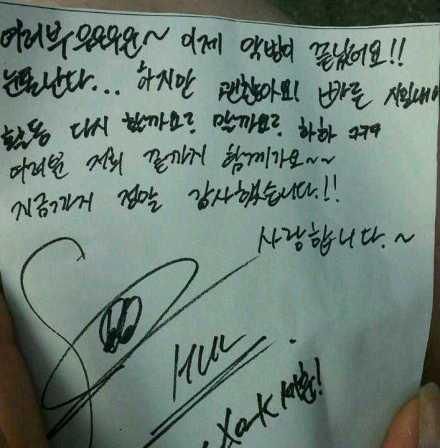 여러부우우우운~ 이제 막방이 끝났어요!!
눈물난다... 하지만 괜찮아요! 바로 시일내에
활동 다시 할까요? 말까요? 하하 ㅋㅋㅋ
여러분 저희 끝까지 함께가요~~
지금까지 정말 감사했습니다.!!
사랑합니다.~